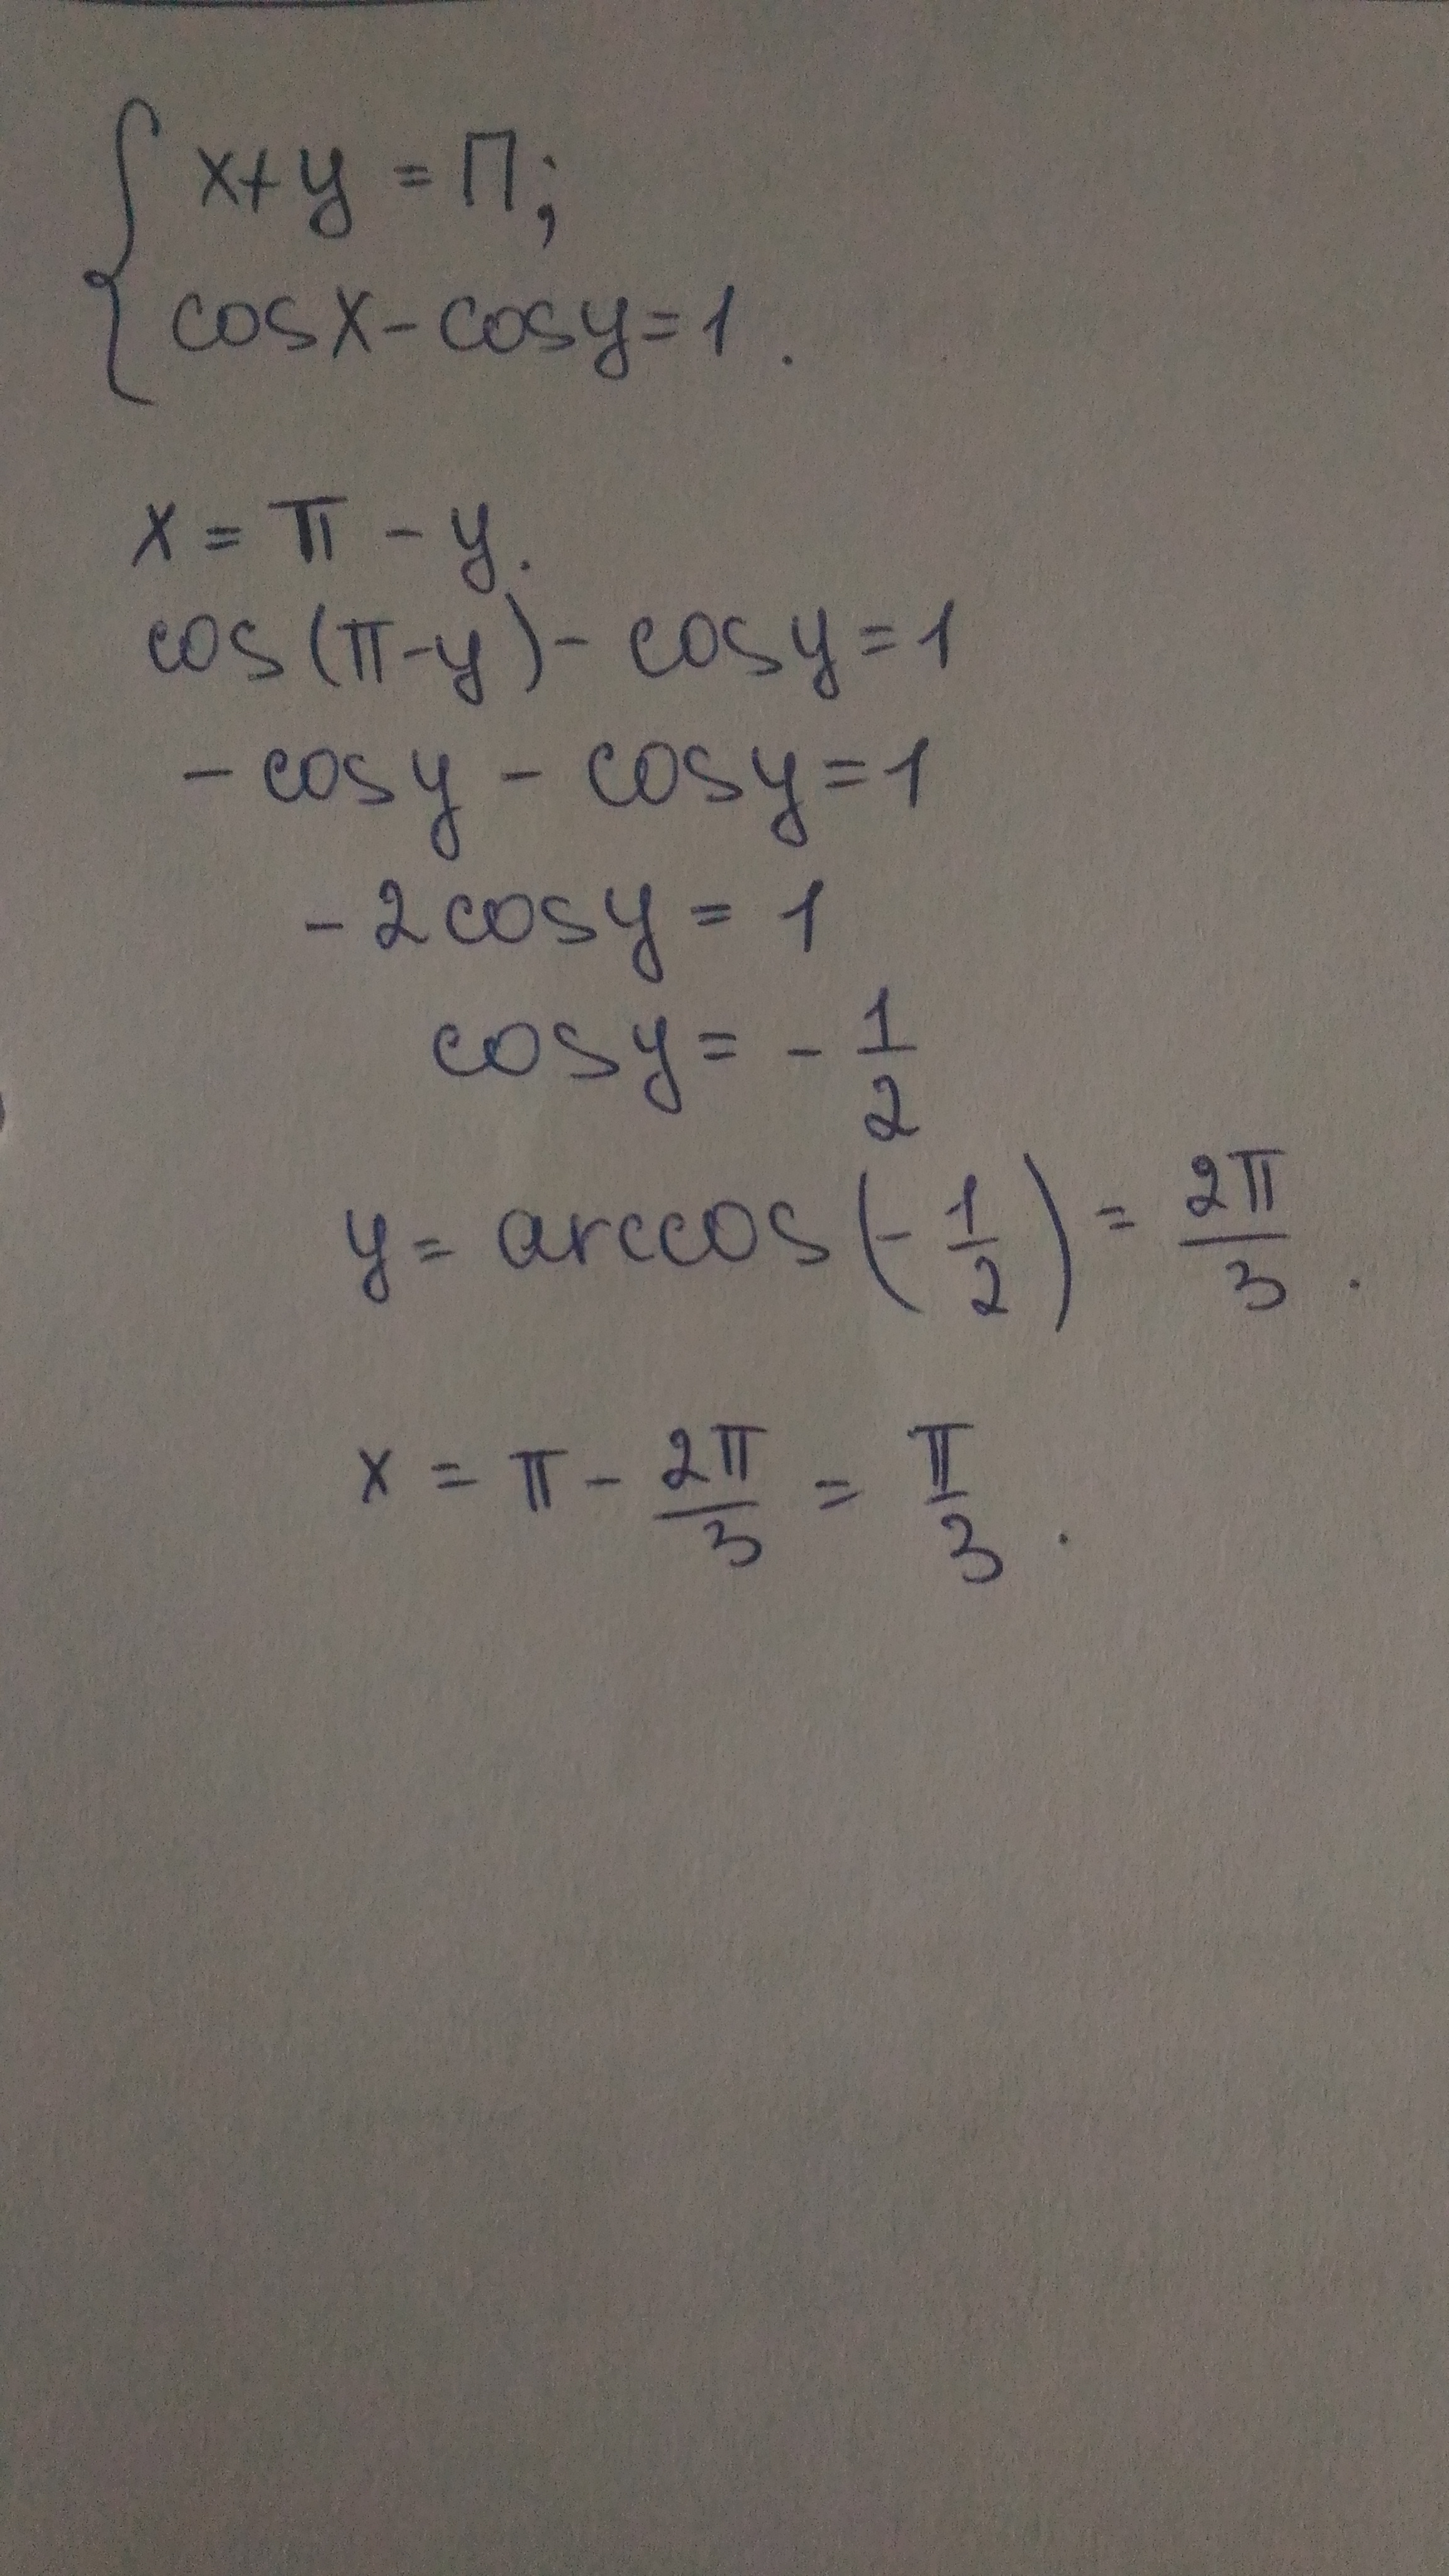 { x+y = П;
cosx - cosy = 1.
x = π - y.
cos(π-y) - cosy = 1
- cosy - cosy = 1
- 2cosy = 1
cosy = - 1/2
y = arccos(- 1/2) = 2π/3.
x = π - 2π/3 = π/3.